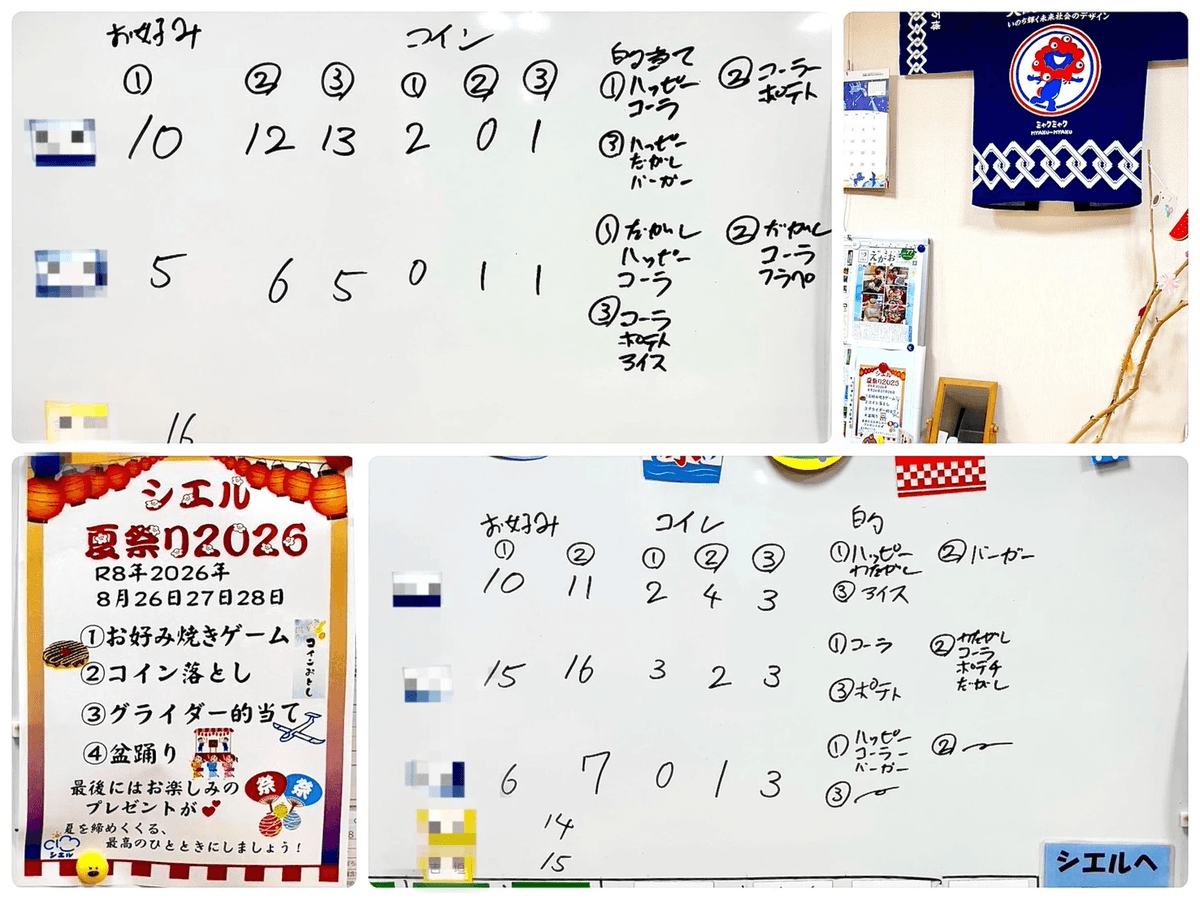 お好み
コイン
① ② ③ ① ② ③
10 12 13 2 0 1
的当て
①ハッピー
コーラ
②コーラー
ポテト
③ハッピー
だがし
バーガー
5 6 5 0 1 1
①だがし
ハッピー
コーラ
②だがし
コーラ
フラペ
③コーラ
ポテト
アイス
16
いのち輝く未来社会のデザイン
ミャクミャク
MYAKU-MYAKU
えがお
シエル
夏祭り2025
シエル
夏祭り2026
R8年2026年
8月26日27日28日
①お好み焼きゲーム
②コイン落とし
コインおとし
③グライダー的当て
④盆踊り
最後にはお楽しみの
プレゼントが
祭 祭
夏を締めくくる、
最高のひとときにしましょう！
シエル
お好み
コイン
的
① ② ① ② ③
10 11 2 4 3
①ハッピー
わたがし
②バーガー
③アイス
15 16 3 2 3
①コーラ
②わたがし
コーラ
ポテチ
だがし
③ポテト
6 7 0 1 3
①ハッピー
コーラー
バーガー
②
③
14
15
シエルへ